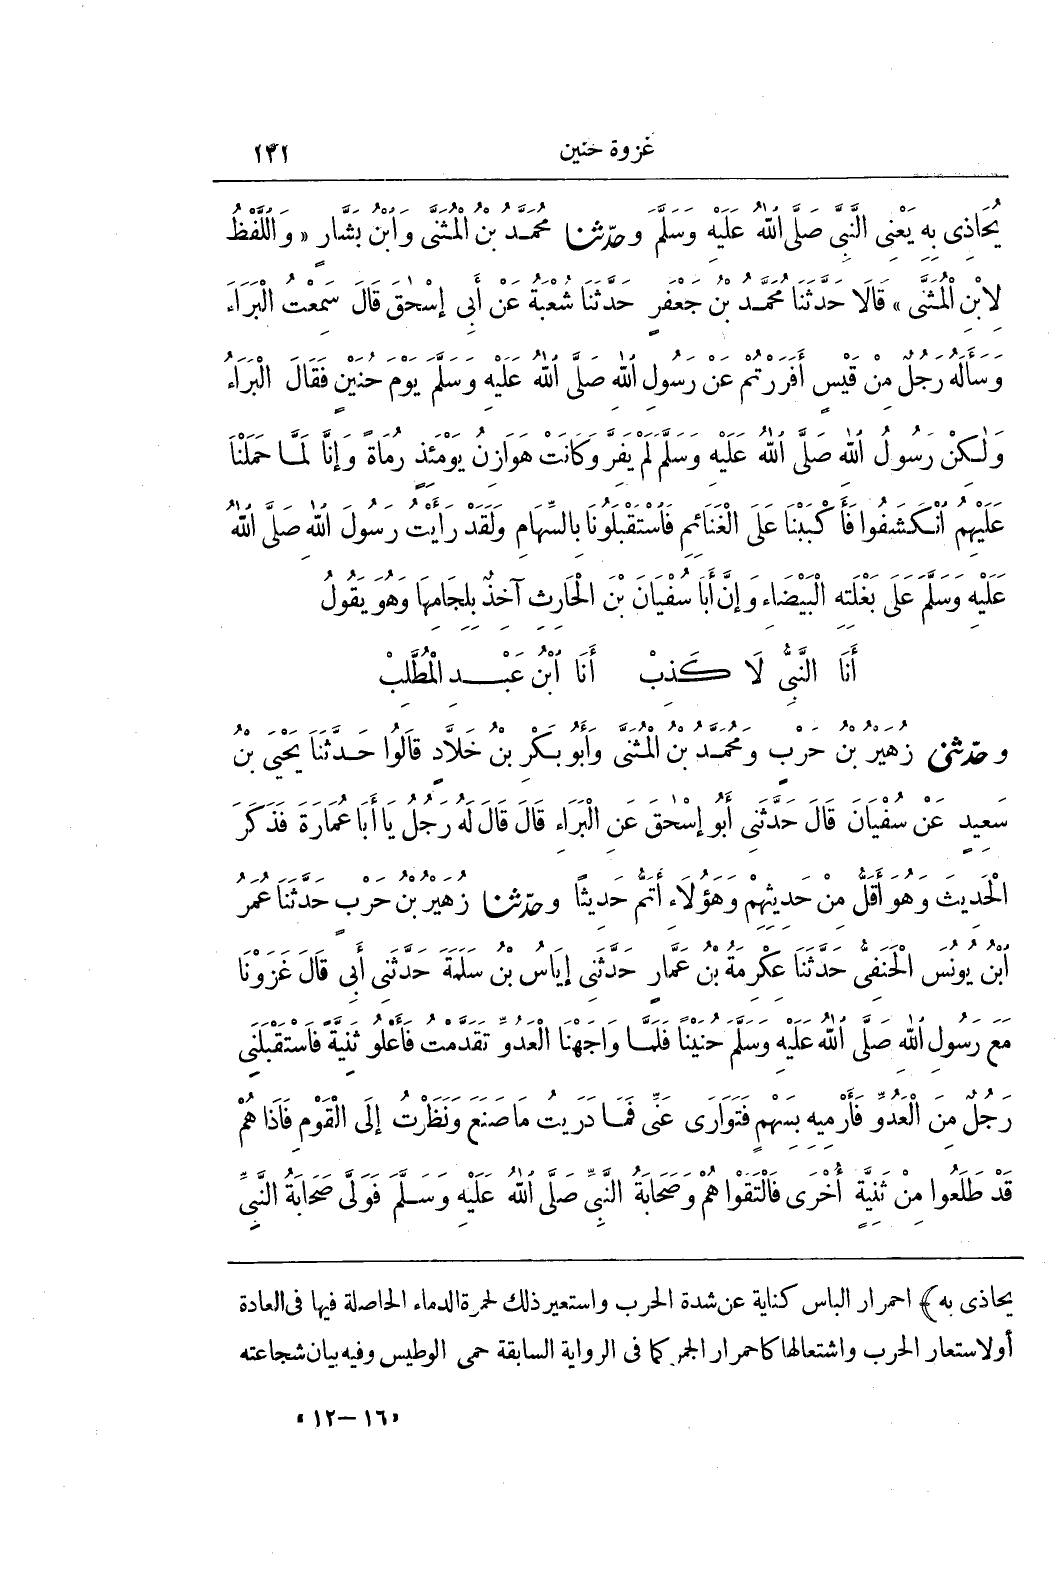 غزوة حنين ١٢١
يُحَاذِى بِهِ يَعْنِى النَّبِىَّ صَلَّى اللهُ عَلَيْهِ وَسَلَّمَ وحدثنا مُحَمَّدُ بْنُ الْمُثَنَّى وَابْنُ بَشَّارٍ «وَاللَّفْظُ
لِابْنِ الْمُثَنَّى» قَالَا حَدَّثَنَا مُحَمَّدُ بْنُ جَعْفَرٍ حَدَّثَنَا شُعْبَةُ عَنْ أَبِى إِسْحٰقَ قَالَ سَمِعْتُ الْبَرَاءَ
وَسَأَلَهُ رَجُلٌ مِنْ قَيْسٍ أَفَرَرْتُمْ عَنْ رَسُولِ اللهِ صَلَّى اللهُ عَلَيْهِ وَسَلَّمَ يَوْمَ حُنَيْنٍ فَقَالَ الْبَرَاءُ
وَلٰكِنْ رَسُولُ اللهِ صَلَّى اللهُ عَلَيْهِ وَسَلَّمَ لَمْ يَفِرَّ وَكَانَتْ هَوَازِنُ يَوْمَئِذٍ رُمَاةً وَإِنَّا لَمَّا حَمَلْنَا
عَلَيْهِمُ انْكَشَفُوا فَأَكْبَبْنَا عَلَى الْغَنَائِمِ فَاسْتَقْبَلُونَا بِالسِّهَامِ وَلَقَدْ رَأَيْتُ رَسُولَ اللهِ صَلَّى اللهُ
عَلَيْهِ وَسَلَّمَ عَلَى بَغْلَتِهِ الْبَيْضَاءِ وَإِنَّ أَبَا سُفْيَانَ بْنَ الْحَارِثِ آخِذٌ بِلِجَامِهَا وَهُوَ يَقُولُ
أَنَا النَّبِىُّ لَا كَذِبْ أَنَا ابْنُ عَبْدِ الْمُطَّلِبْ
وحدثنى زُهَيْرُ بْنُ حَرْبٍ وَمُحَمَّدُ بْنُ الْمُثَنَّى وَأَبُو بَكْرِ بْنُ خَلَّادٍ قَالُوا حَدَّثَنَا يَحْيَى بْنُ
سَعِيدٍ عَنْ سُفْيَانَ قَالَ حَدَّثَنِى أَبُو إِسْحٰقَ عَنِ الْبَرَاءِ قَالَ قَالَ لَهُ رَجُلٌ يَا أَبَا عُمَارَةَ فَذَكَرَ
الْحَدِيثَ وَهُوَ أَقَلُّ مِنْ حَدِيثِهِمْ وَهَؤُلَاءِ أَتَمُّ حَدِيثًا وحدثنا زُهَيْرُ بْنُ حَرْبٍ حَدَّثَنَا عُمَرُ
ابْنُ يُونُسَ الْحَنَفِىُّ حَدَّثَنَا عِكْرِمَةُ بْنُ عَمَّارٍ حَدَّثَنِى إِيَاسُ بْنُ سَلَمَةَ حَدَّثَنِى أَبِى قَالَ غَزَوْنَا
مَعَ رَسُولِ اللهِ صَلَّى اللهُ عَلَيْهِ وَسَلَّمَ حُنَيْنًا فَلَمَّا وَاجَهْنَا الْعَدُوَّ تَقَدَّمْتُ فَأَعْلُو ثَنِيَّةً فَاسْتَقْبَلَنِى
رَجُلٌ مِنَ الْعَدُوِّ فَأَرْمِيهِ بِسَهْمٍ فَتَوَارَى عَنِّى فَمَا دَرَيْتُ مَا صَنَعَ وَنَظَرْتُ إِلَى الْقَوْمِ فَإِذَا هُمْ
قَدْ طَلَعُوا مِنْ ثَنِيَّةٍ أُخْرَى فَالْتَقَوْا هُمْ وَصَحَابَةُ النَّبِىِّ صَلَّى اللهُ عَلَيْهِ وَسَلَّمَ فَوَلَّى صَحَابَةُ النَّبِىِّ
يحاذى به﴾ احمرار الباس كناية عن شدة الحرب واستعير ذلك لحمرة الدماء الحاصلة فيها فى العادة
أو لاستعار الحرب واشتعالها كاحمرار الجمر كما فى الرواية السابقة حمى الوطيس وفيه بيان شجاعته
«١٦ – ١٢»